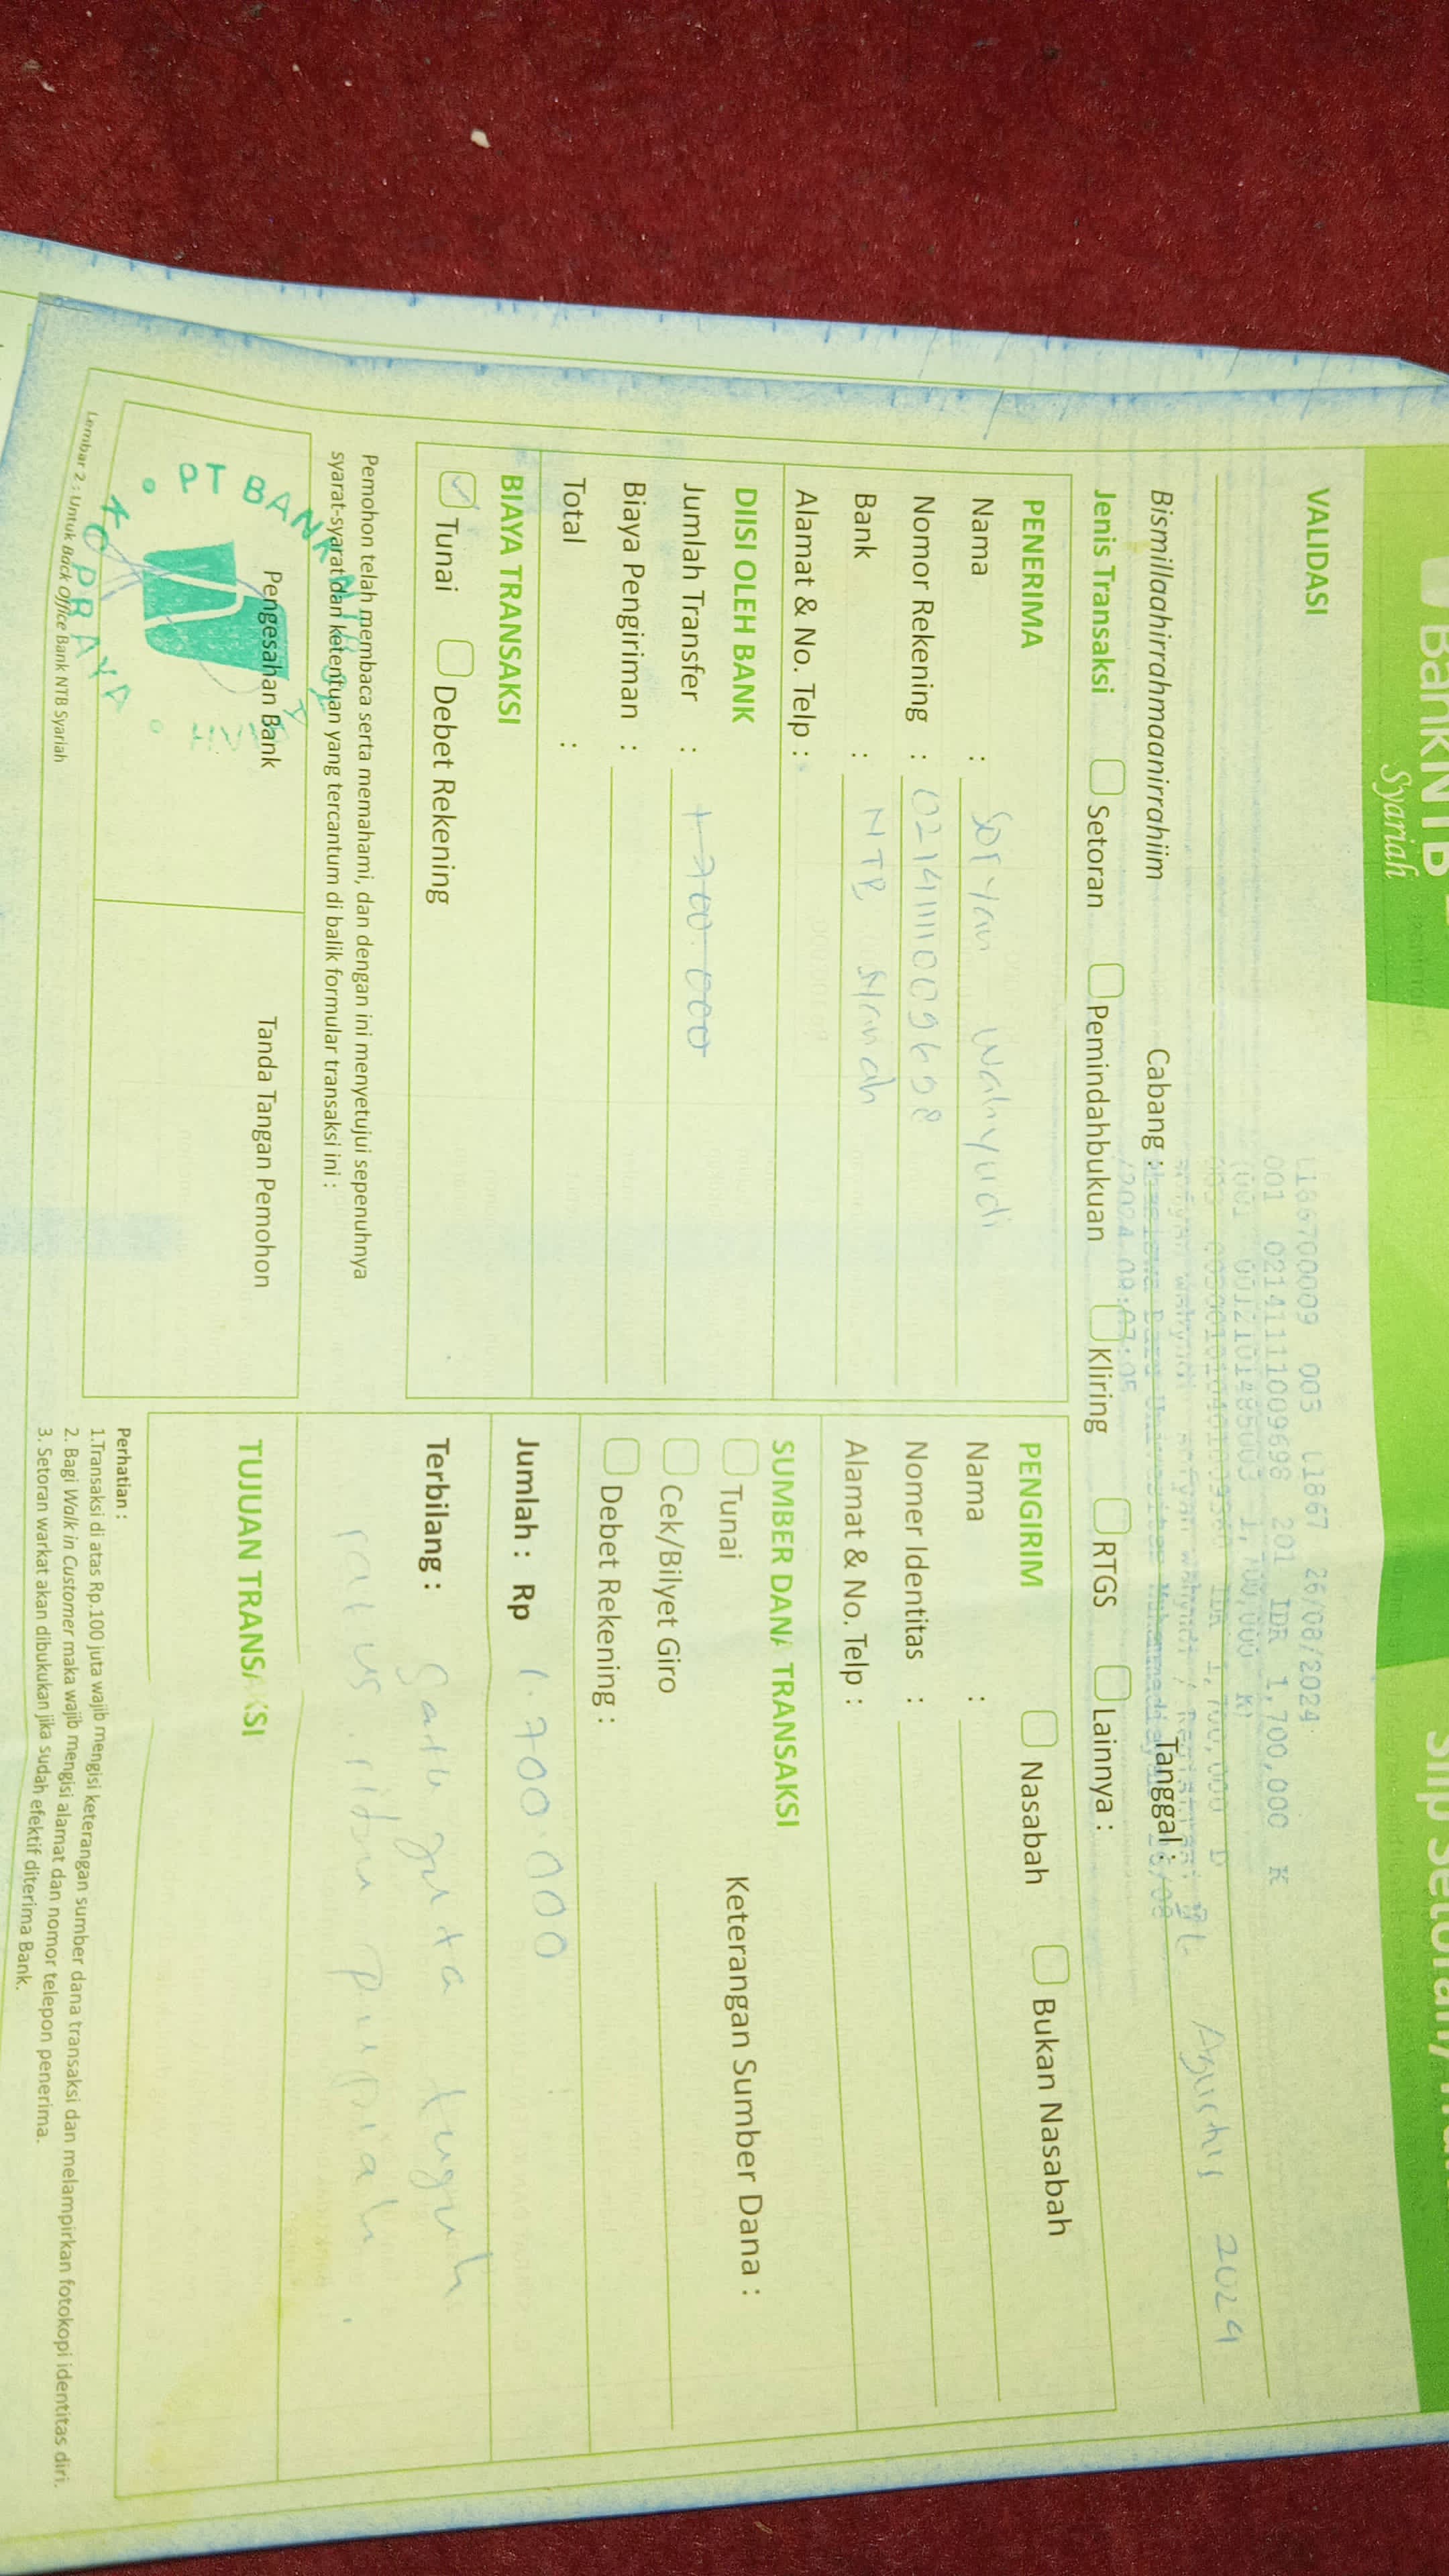 BankNTB
Syariah
Slip Setoran/
VALIDASI
L186700009 003 L1867 26/08/2024
001 0214111109698 201 IDR 1,700,000 K
(001 0012101485003 1,700,000 K)
IDR 1,700,000 D
sofyan wahyudi / Registrasi
Mahasiswa Baru Universitas Muhammadiyah
/2024 09:07:05
Bismillaahirrahmaanirrahiim Cabang : Tanggal : Agustus 2024
Jenis Transaksi Setoran Pemindahbukuan Kliring RTGS Lainnya :
PENERIMA
Nama : Sofyan Wahyudi
Nomor Rekening :
Bank : NTB Syariah
Alamat & No. Telp :
DIISI OLEH BANK
Jumlah Transfer : 1.700.000
Biaya Pengiriman :
Total :
BIAYA TRANSAKSI
Tunai Debet Rekening
Pemohon telah membaca serta memahami, dan dengan ini menyetujui sepenuhnya
syarat-syarat dan ketentuan yang tercantum di balik formular transaksi ini :
Pengesahan Bank
PT BANK NTB
PRAYA
Tanda Tangan Pemohon
Lembar 2 : Untuk Back Office Bank NTB Syariah
PENGIRIM Nasabah Bukan Nasabah
Nama :
Nomer Identitas :
Alamat & No. Telp :
SUMBER DANA TRANSAKSI
Tunai Keterangan Sumber Dana :
Cek/Bilyet Giro
Debet Rekening :
Jumlah : Rp 1.700.000
Terbilang : Satu juta tujuh
ratus ribu rupiah
TUJUAN TRANSAKSI
Perhatian :
1.Transaksi di atas Rp.100 juta wajib mengisi keterangan sumber dana transaksi dan melampirkan fotokopi identitas diri.
2. Bagi Walk in Customer maka wajib mengisi alamat dan nomor telepon penerima.
3. Setoran warkat akan dibukukan jika sudah efektif diterima Bank.